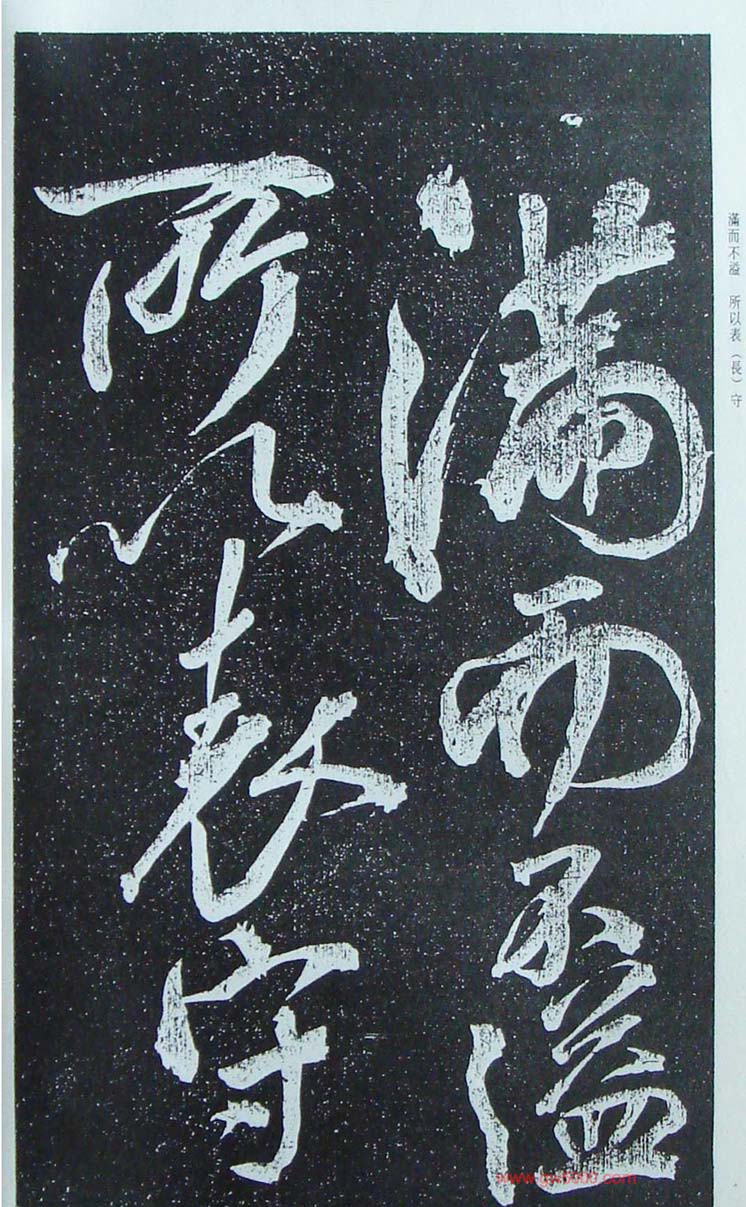 滿而不溢
所以表守
滿而不溢 所以表（長）守
www.gw5000.com